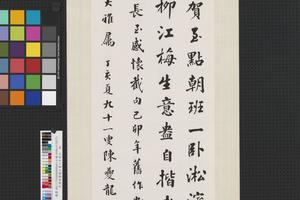 賀玉點朝班一卧淞濱
柳江梅生意盎自揩
長至感懷截句己卯年舊作
大雅属 丁亥夏九十一叟陳夔龍